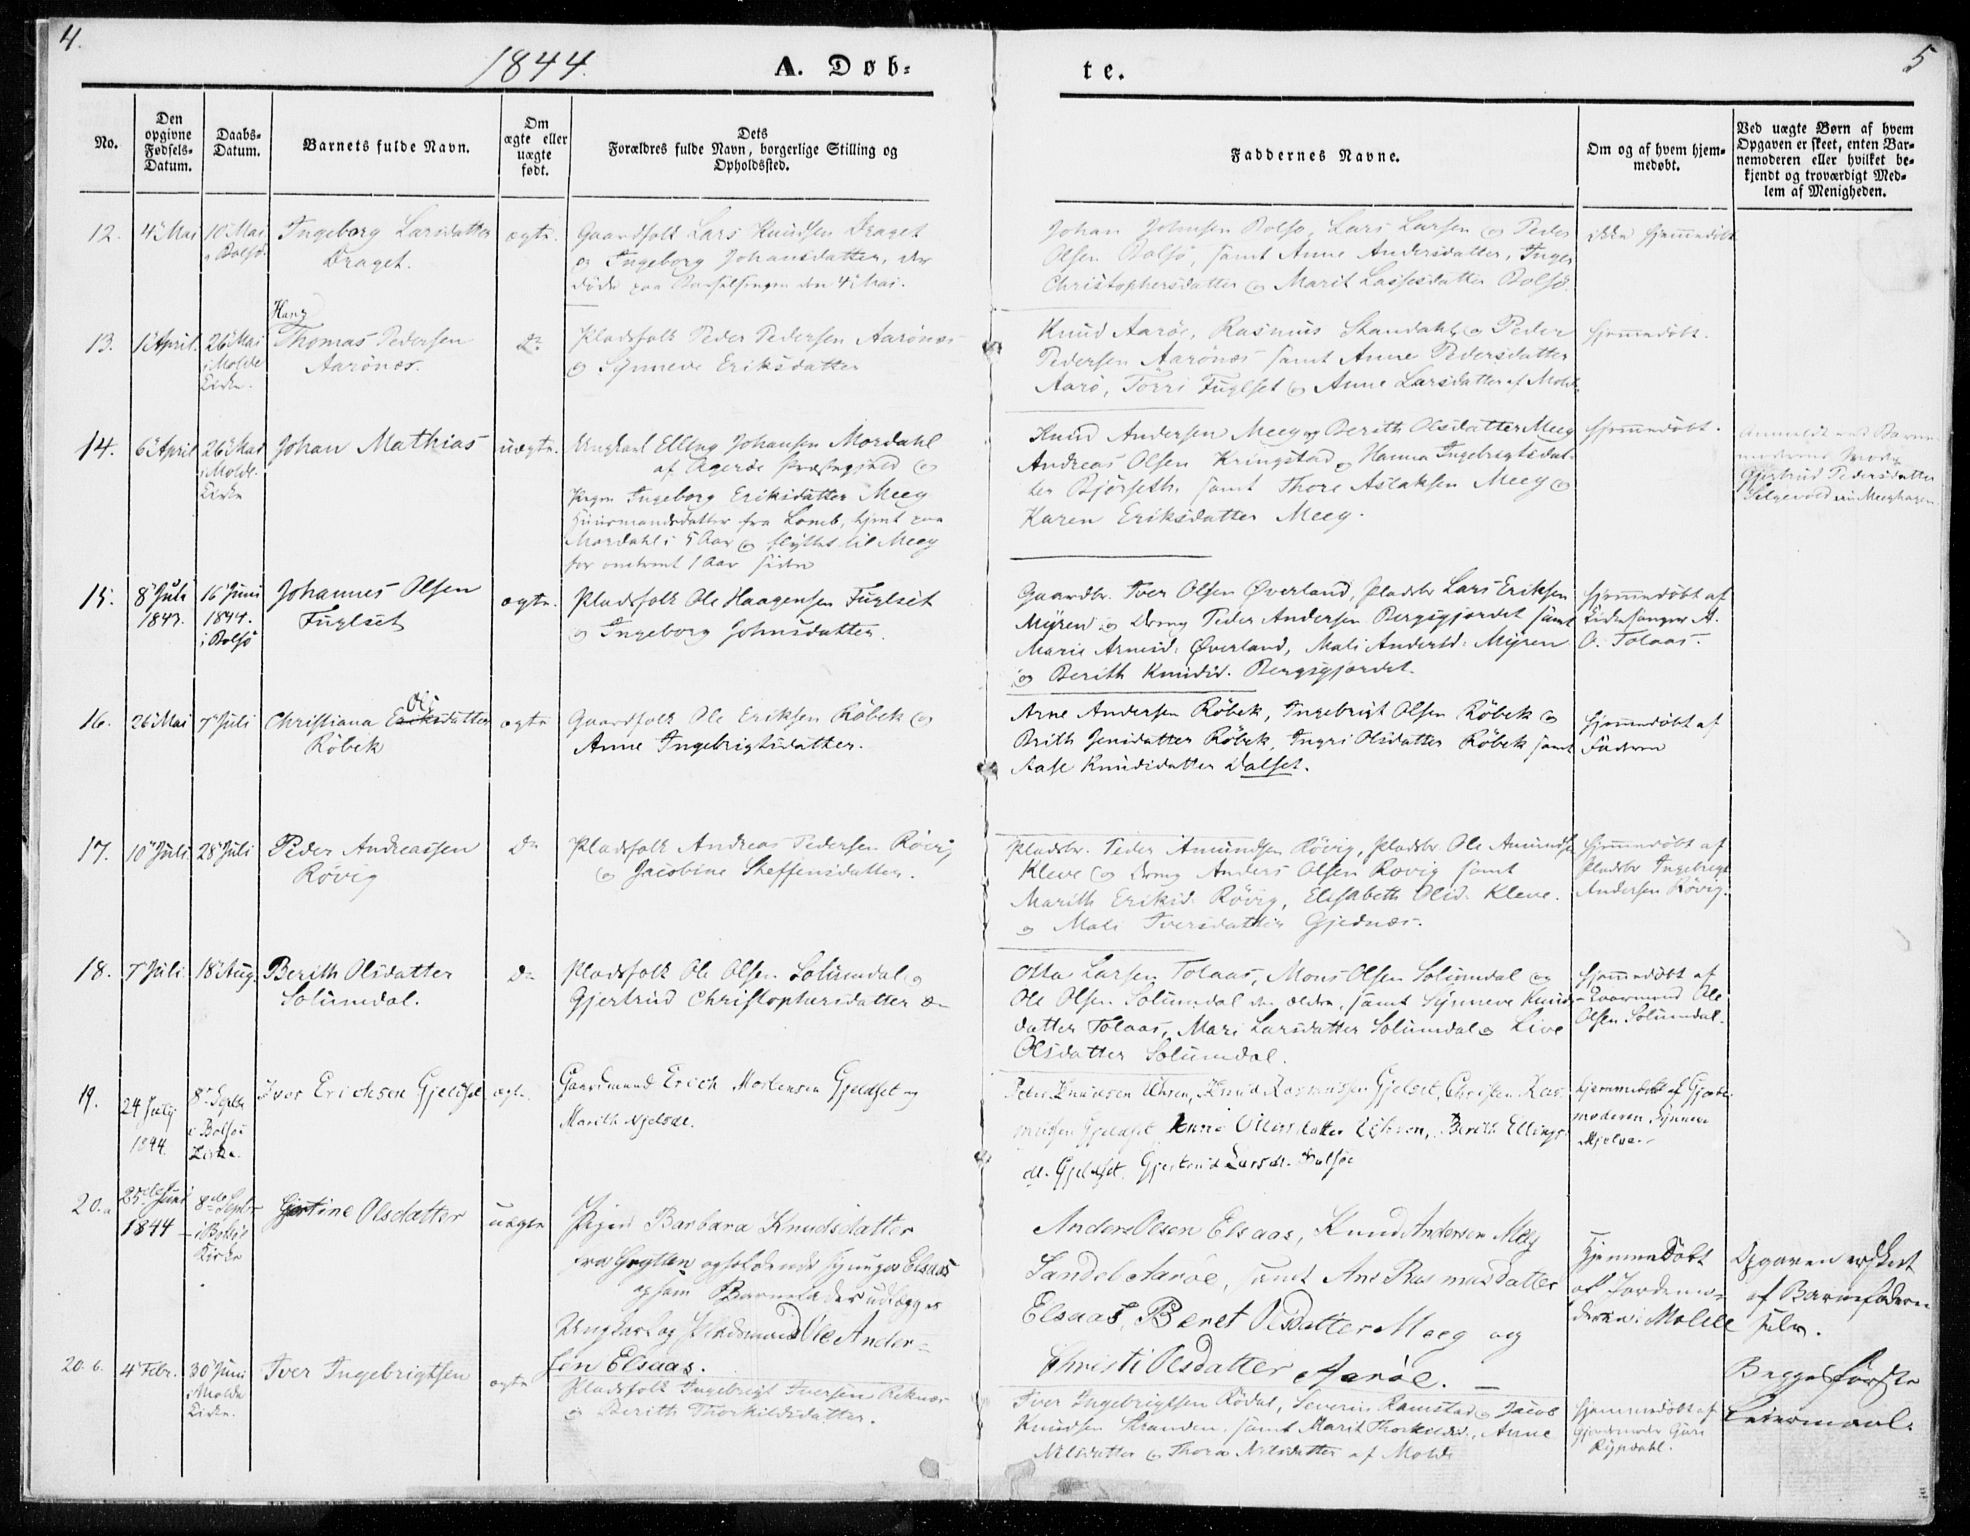 4.
5
1844.
A. Døb-
te.
No.
Den opgivne Fødsels-Datum.
Daabs-Datum.
Barnets fulde Navn.
Om ægte eller uægte født.
Dets Forældres fulde Navn, borgerlige Stilling og Opholdssted.
Faddernes Navne.
Om og af hvem hjem-medøbt.
Ved uægte Børn af hvem Opgaven er skeet, enten Bar-nemoderen eller hvilket be-kjendt og troværdigt Med-lem af Menigheden.
12.
4 Mai
10 Mai
Bolsø
Ingeborg Larsdatter
Draget.
ægte.
Gaardfolk Lars Knudsen Draget
og Ingeborg Johansdatter, der
døde paa Barselsengen den 4 Mai.
Johan Johnsen Bolsø, Lars Larsen og Peder
Olsen Bolsø, samt Anne Andersdatter, Inger
Christophersdatter og Marit Lassesdatter Bolsø.
ikke hjemmedøbt
13.
1 April.
26 Mai
i Molde
Kirke.
Hans
Thomas Pedersen
Aarønes.
Do
Pladsfolk Peder Pedersen Aarønes
og Synneve Eriksdatter
Knud Aarøe, Rasmus Skandahl og Peder
Pedersen Aarønes samt Anne Pedersdatter
Aarø, Torri Fuglset og Anne Larsdatter af Molde
hjemmedøbt.
14.
6 April
26 Mai
i Molde
Kirke
Johan Mathias
uægte.
Ungkarl Elling Johansen Mordahl
af Agerøe Præstegjeld og
Pigen Ingeborg Eriksdatter Meeg
Huusmandsdatter fra Lomb, tjent paa
Mordahl i 5 Aar og flyttet til Meeg
for omtrent 1 Aar siden
Knud Andersen Meeg og Berith Olsdatter Meeg
Andreas Olsen Kringstad og Hanna Ingebrigtsdat-
ter Bjørseth, samt Thore Aslaksen Meeg og
Karen Eriksdatter Meeg.
hjemmedøbt.
Anmeldt ved Barne-
moderens Moder
Gjertrud Pedersdatter
Meeghagen
15.
8 Juli
1843.
16 Juni
1844.
i Bolsø
Johannes Olsen
Fuglset
ægte.
Pladsfolk Ole Haagensen Fuglset
og Ingeborg Johnsdatter.
Gaardbr. Iver Olsen Øverland, Pladsbr Lars Eriksen
Myren og Dreng Peder Andersen Bergsgjerdet samt
Marie Arnesd: Øverland, Mali Andersd: Myren
og Berith Knudsd. Bergsgjerdet.
hjemmedøbt af
Kirkesanger A.
O. Tolaas.
16.
26 Mai
7 Juli
Ols
Christiana Eriksdatter
Røbek
ægte
Gaardfolk Ole Eriksen Røbek og
Anne Ingebrigtsdatter.
Arne Andersen Røbek, Ingebrigt Olsen Røbek og
Brith Jensdatter Røbek, Ingri Olsdatter Røbek samt
Aase Knudsdatter Dalset.
hjemmedøbt af
Faderen
17.
10 Juli
28 Juli
Peder Andreassen
Røvig
Do
Pladsfolk Andreas Pedersen Røvig
og Jacobine Steffensdatter.
Pladsbr. Peder Amundsen Røvig, Pladsbr Ole Amundsen
Kleve og Dreng Anders Olsen Røvig samt
Marith Eriksd. Røvig, Elisabeth Olsd. Kleve.
og Mali Iversdatter Gjednæs.
hjemmedøbt af
Pladsbr Ingebrigt
Andersen Røvig.
18.
7 Juli
18 Aug.
Berith Olsdatter
Solumdal.
Do
Pladsfolk Ole Olsen Solumdal og
Gjertrud Christophersdatter
Otta Larsen Tolaas, Mons Olsen Solumdal og
Ole Olsen Solumdal den ældre, samt Synneve Knuds-
datter Tolaas, Mari Larsdatter Solumdal og Live
Olsdatter Solumdal.
hjemmedøbt af
Gaarmand Ole
Olsen Solumdal.
19.
24 July
1844.
8 Septbr
i Bolsøe
Kirke.
Iver Erichsen Gjeldset
ægte.
Gaardmand Erich Mortensen Gjeldset og
Marith Njelsdr.
Peder Knudsen Øhren, Knud Rasmussen Gjelset, Christen Ras-
mussen Gjeldset, Øhren, Berith Ellings-
dr. Gjeldset, Gjertrud Larsdr. Bolsøe
hjemmedøbt af Gjorde-
moderen Synneve
Mjelve.
20. a
25de Juni
1844
8de Septbr
i Bolsøe
Kirke
Gjertine Olsdatter
uægte
Pigen Barbara Knudsdatter
fra opholdende sig nu paa Elsaas
og som Barnefader udlægges
Ungkarl og Ole Ander-
sen Elsaas.
Anders Olsen Elsaas, Knud Andersen Meeg
Sandel Aarøe, samt Ane Rasmusdatter
Elsaas, Beret Olsdatter Meeg og
Christi Olsdatter Aarøe.
Hjemmedøbt
af Jordemo-
deren i Molde
Opgaven er skeet
af Barnefaderen
selv.
Begges første
Leiermaal.
20. b.
4 Febr.
30 Juni
i Molde
Kirke.
Iver Ingebrigtsen
ægte
Pladsfolk Ingebrigt Iversen Reknæs
og Berith Thorkildsdatter.
Iver Ingebrigtsen Rødal, Severin Ramstad og Jacob
Knudsen Stranden, samt Marit Thorkildsd., Anne
Nilsdatter og Thora Nilsdatter af Molde
hjemmedøbt af
Gjordemoder Guri
Rypdahl.